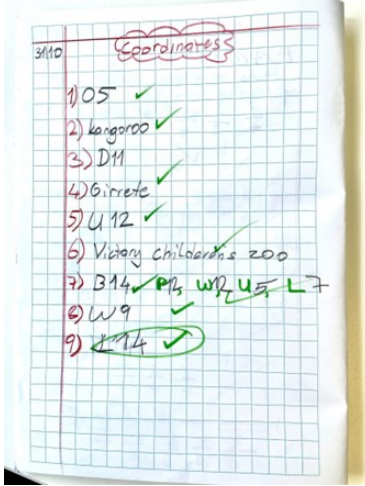 31/10
Coordinatess
1) O5
2) kongoroo
3) D11
4) Girrete
5) U 12
6) Victory childerens zoo
7) B14 P12, W12, U5, L7
8) W9
9) L14